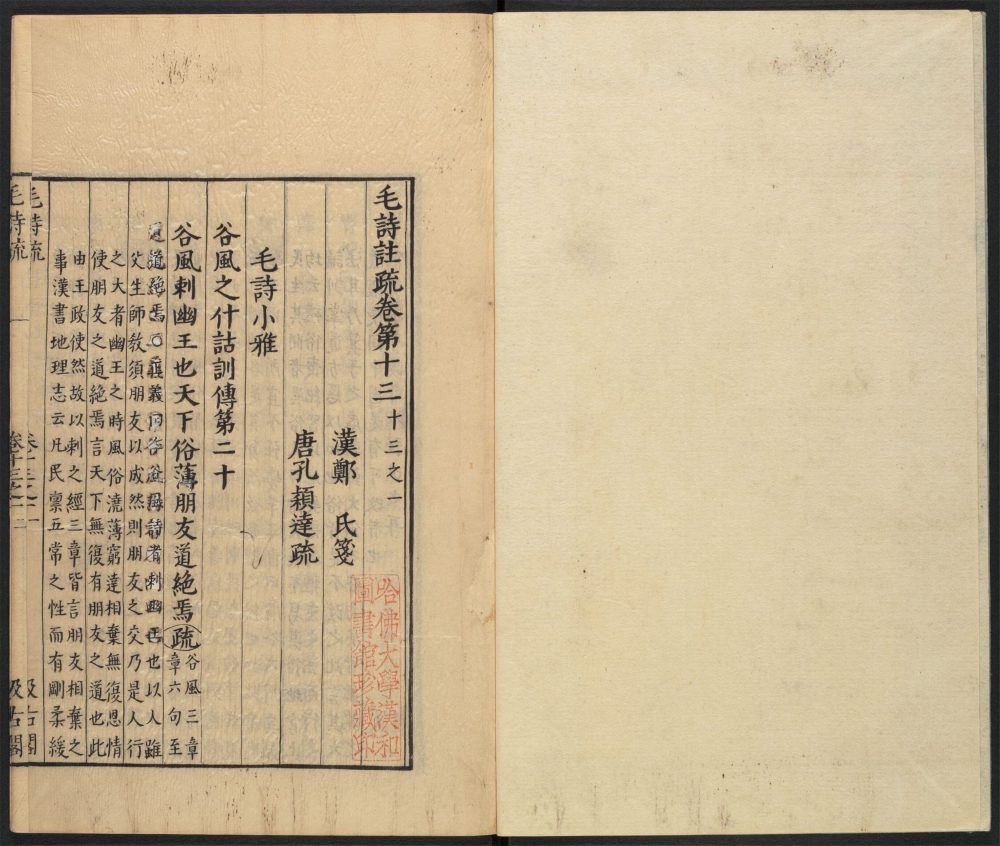 毛詩註疏卷第十三 十三之一
漢鄭 氏箋
唐孔穎達疏
哈佛大學漢和
圖書館珍藏印
毛詩小雅
谷風之什詁訓傳第二十
谷風刺幽王也天下俗薄朋友道絶焉疏谷風三章
章六句至
道絶焉○
刺幽王也以人雖
父生師教須朋友以成然則朋友之交乃是人行
之大者幽王之時風俗澆薄窮達相棄無復恩情
使朋友之道絶焉言天下無復有朋友之道也此
由王政使然故以刺之經三章皆言朋友相棄之
事漢書地理志云凡民禀五常之性而有剛柔緩
毛詩疏
汲古閣
毛詩疏
汲古閣